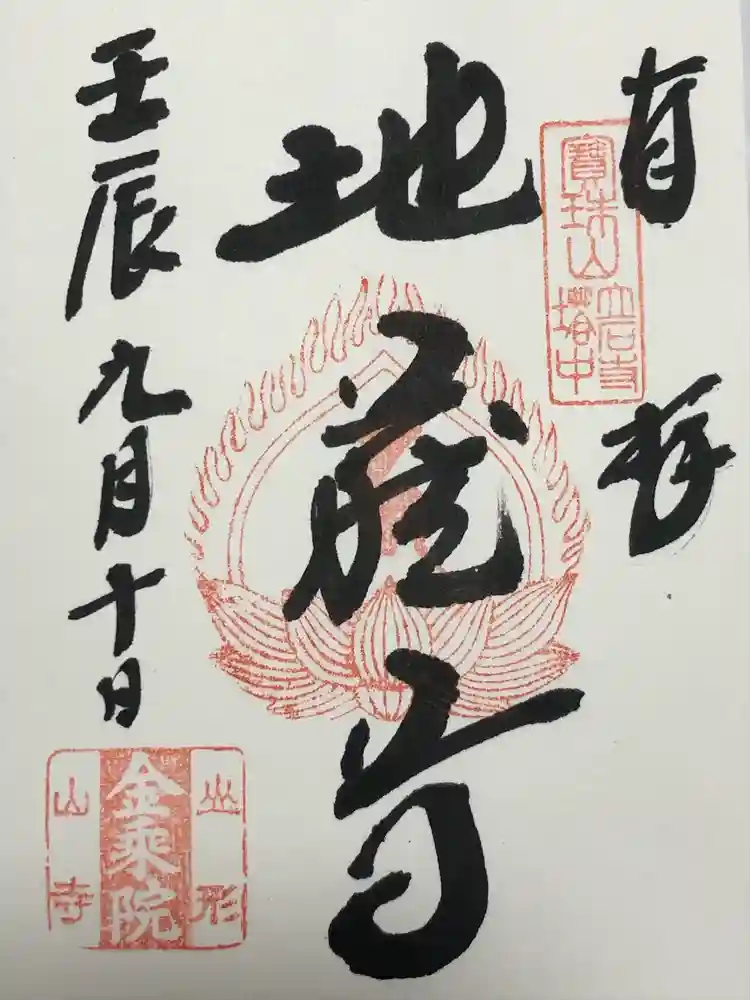 有拝
寳珠山
立石寺
塔中
地蔵尊
壬辰九月十日
山形
金乘院
山寺